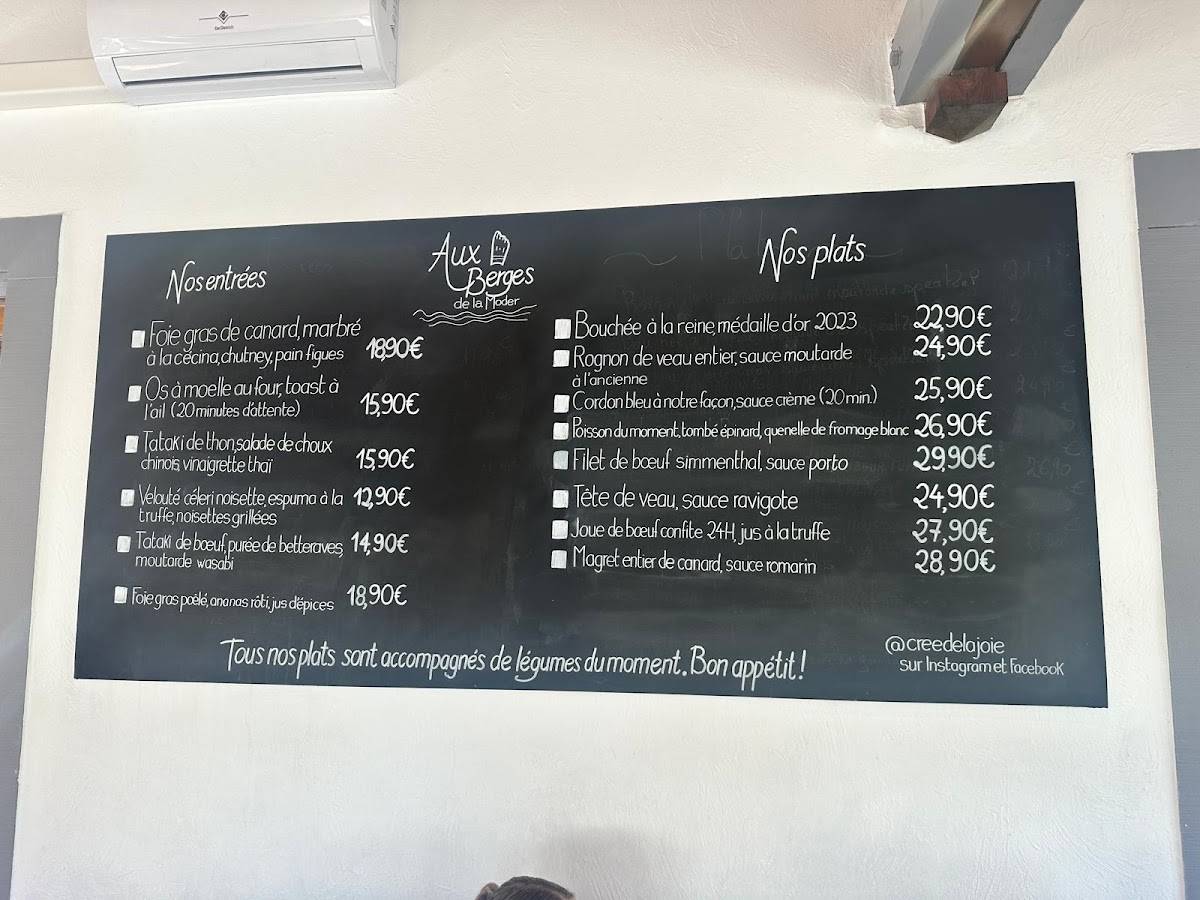 Nos entrées
Foie gras de canard, marbré
à la cecina, chutney, pain figues 18,90€
Os à moelle au four, toast à
l'ail (20 minutes d'attente) 15,90€
Tataki de thon, salade de choux
chinois, vinaigrette thaï 15,90€
Velouté céleri noisette, espuma à la 12,90€
truffe, noisettes grillées
Tataki de bœuf, purée de betteraves, 14,90€
moutarde wasabi
Foie gras poêlé, ananas rôti, jus d'épices 18,90€
Aux
Berges
de la Moder
Nos plats
Bouchée à la reine, médaille d'or 2023 22,90€
Rognon de veau entier, sauce moutarde 24,90€
à l'ancienne
Cordon bleu à notre façon, sauce crème (20 min.) 25,90€
Poisson du moment, tombé épinard, quenelle de fromage blanc 26,90€
Filet de bœuf simmenthal, sauce porto 29,90€
Tête de veau, sauce ravigote 24,90€
Joue de bœuf confite 24H, jus à la truffe 27,90€
Magret entier de canard, sauce romarin 28,90€
Tous nos plats sont accompagnés de légumes du moment. Bon appétit !
@creedelajoie
sur Instagram et Facebook